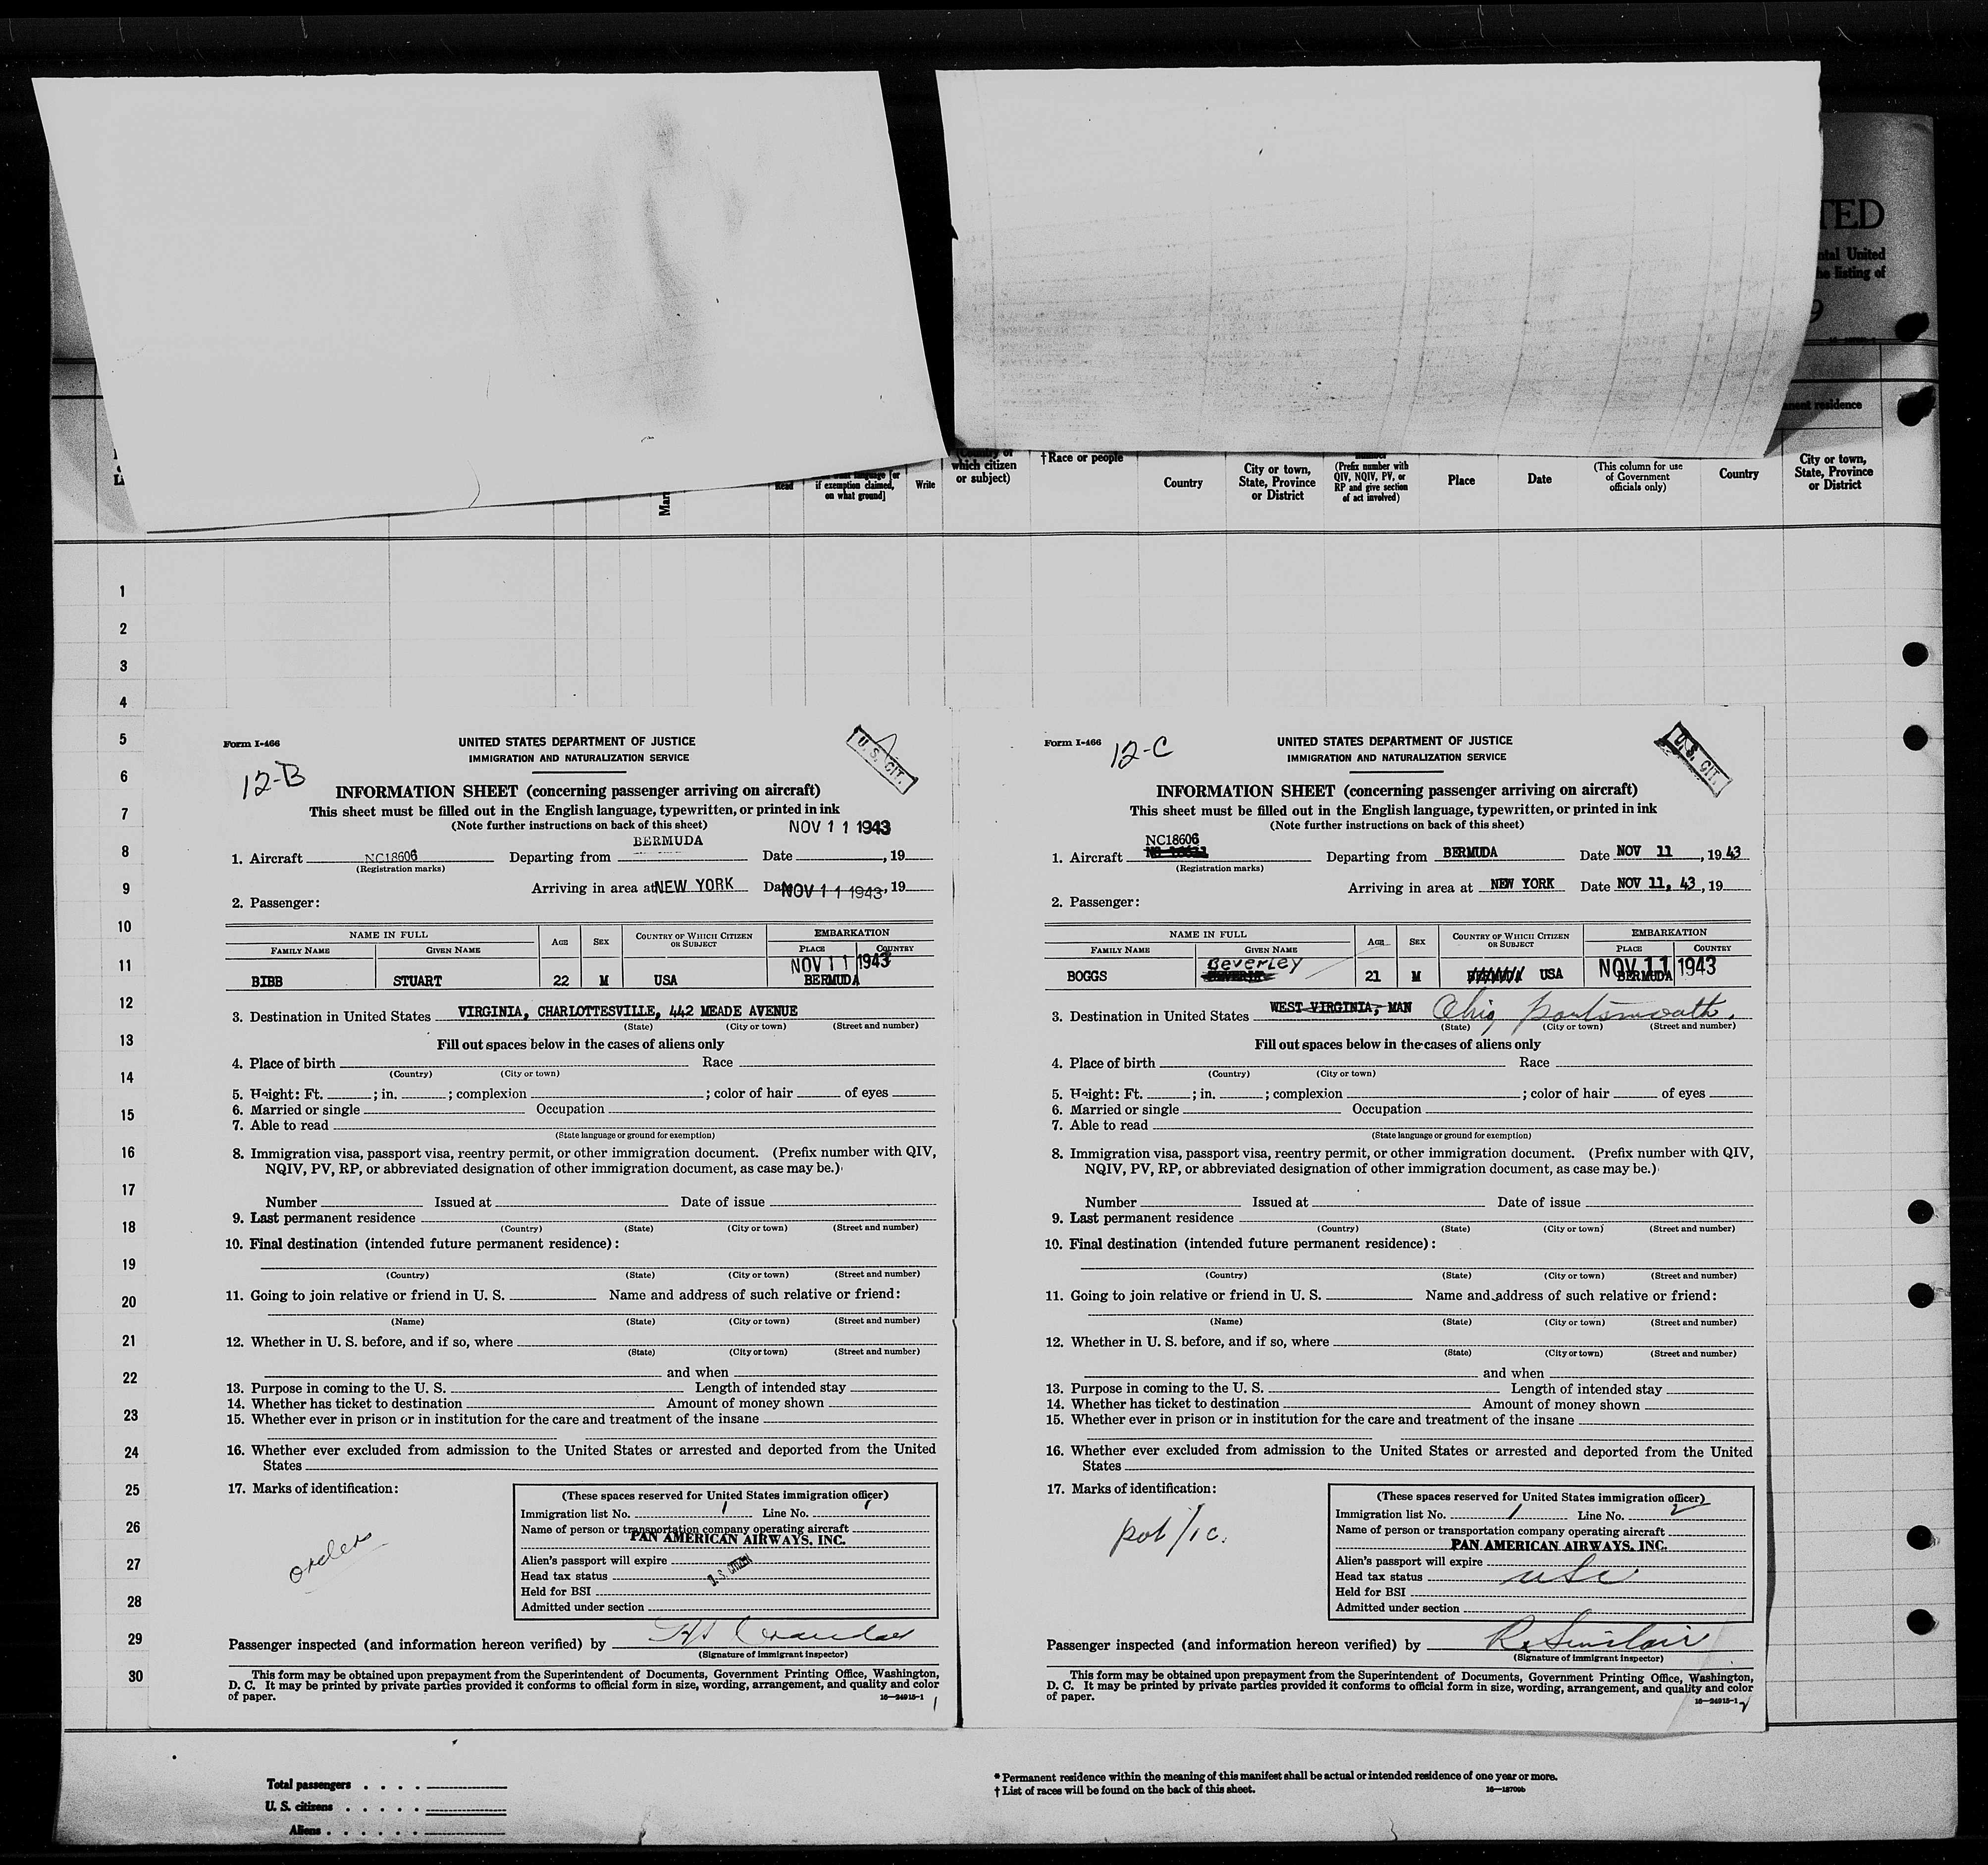 TED
ntal United
he listing of
9
anent residence
which citizen
or subject)
†Race or people
Read
if exemption claimed,
on what ground]
Write
Country
City or town,
State, Province
or District
(Prefix number with
QIV, NQIV, PV, or
RP and give section
of act involved)
Place
Date
(This column for use
of Government
officials only)
Country
City or town,
State, Province
or District
1
2
3
4
5
6
7
8
9
10
11
12
13
14
15
16
17
18
19
20
21
22
23
24
25
26
27
28
29
30
Form I-466
12-B
UNITED STATES DEPARTMENT OF JUSTICE
IMMIGRATION AND NATURALIZATION SERVICE
U. S. CIT.
INFORMATION SHEET (concerning passenger arriving on aircraft)
This sheet must be filled out in the English language, typewritten, or printed in ink
(Note further instructions on back of this sheet)
NOV 11 1943
BERMUDA
1. Aircraft NC18606 Departing from Date , 19
(Registration marks)
Arriving in area at NEW YORK Date NOV 11 1943, 19
2. Passenger:
NAME IN FULL AGE SEX COUNTRY OF WHICH CITIZEN OR SUBJECT EMBARKATION
FAMILY NAME GIVEN NAME PLACE COUNTRY
NOV 11 1943
BIBB STUART 22 M USA BERMUDA
3. Destination in United States VIRGINIA, CHARLOTTESVILLE, 442 MEADE AVENUE
(State) (City or town) (Street and number)
Fill out spaces below in the cases of aliens only
4. Place of birth Race
(Country) (City or town)
5. Height: Ft. ; in. ; complexion ; color of hair of eyes
6. Married or single Occupation
7. Able to read
(State language or ground for exemption)
8. Immigration visa, passport visa, reentry permit, or other immigration document. (Prefix number with QIV,
NQIV, PV, RP, or abbreviated designation of other immigration document, as case may be.)
Number Issued at Date of issue
9. Last permanent residence
(Country) (State) (City or town) (Street and number)
10. Final destination (intended future permanent residence):
(Country) (State) (City or town) (Street and number)
11. Going to join relative or friend in U. S. Name and address of such relative or friend:
(Name) (State) (City or town) (Street and number)
12. Whether in U. S. before, and if so, where
(State) (City or town) (Street and number)
and when
13. Purpose in coming to the U. S. Length of intended stay
14. Whether has ticket to destination Amount of money shown
15. Whether ever in prison or in institution for the care and treatment of the insane
16. Whether ever excluded from admission to the United States or arrested and deported from the United
States
17. Marks of identification:
order
(These spaces reserved for United States immigration officer)
Immigration list No. 1 Line No. 1
Name of person or transportation company operating aircraft
PAN AMERICAN AIRWAYS, INC.
Alien's passport will expire
Head tax status
Held for BSI
Admitted under section
Passenger inspected (and information hereon verified) by
(Signature of immigrant inspector)
This form may be obtained upon prepayment from the Superintendent of Documents, Government Printing Office, Washington,
D. C. It may be printed by private parties provided it conforms to official form in size, wording, arrangement, and quality and color
of paper.
16—24915-1
1
Form I-466
12-C
UNITED STATES DEPARTMENT OF JUSTICE
IMMIGRATION AND NATURALIZATION SERVICE
U. S. CIT.
INFORMATION SHEET (concerning passenger arriving on aircraft)
This sheet must be filled out in the English language, typewritten, or printed in ink
(Note further instructions on back of this sheet)
NC18606
1. Aircraft Departing from BERMUDA Date NOV 11, 1943
(Registration marks)
Arriving in area at NEW YORK Date NOV 11, 43, 19
2. Passenger:
NAME IN FULL AGE SEX COUNTRY OF WHICH CITIZEN OR SUBJECT EMBARKATION
FAMILY NAME GIVEN NAME PLACE COUNTRY
Beverley NOV 11 1943
BOGGS 21 M USA BERMUDA
3. Destination in United States WEST VIRGINIA, MAN Ohio Portsmouth.
(State) (City or town) (Street and number)
Fill out spaces below in the cases of aliens only
4. Place of birth Race
(Country) (City or town)
5. Height: Ft. ; in. ; complexion ; color of hair of eyes
6. Married or single Occupation
7. Able to read
(State language or ground for exemption)
8. Immigration visa, passport visa, reentry permit, or other immigration document. (Prefix number with QIV,
NQIV, PV, RP, or abbreviated designation of other immigration document, as case may be.)
Number Issued at Date of issue
9. Last permanent residence
(Country) (State) (City or town) (Street and number)
10. Final destination (intended future permanent residence):
(Country) (State) (City or town) (Street and number)
11. Going to join relative or friend in U. S. Name and address of such relative or friend:
(Name) (State) (City or town) (Street and number)
12. Whether in U. S. before, and if so, where
(State) (City or town) (Street and number)
and when
13. Purpose in coming to the U. S. Length of intended stay
14. Whether has ticket to destination Amount of money shown
15. Whether ever in prison or in institution for the care and treatment of the insane
16. Whether ever excluded from admission to the United States or arrested and deported from the United
States
17. Marks of identification:
(These spaces reserved for United States immigration officer)
Immigration list No. 1 Line No. 2
Name of person or transportation company operating aircraft
PAN AMERICAN AIRWAYS, INC.
Alien's passport will expire
Head tax status usc
Held for BSI
Admitted under section
Passenger inspected (and information hereon verified) by R. Sinclair
(Signature of immigrant inspector)
This form may be obtained upon prepayment from the Superintendent of Documents, Government Printing Office, Washington,
D. C. It may be printed by private parties provided it conforms to official form in size, wording, arrangement, and quality and color
of paper.
16—24915-1
2
Total passengers . . . .
U. S. citizens . . . . .
Aliens . . . . . .
* Permanent residence within the meaning of this manifest shall be actual or intended residence of one year or more.
† List of races will be found on the back of this sheet.